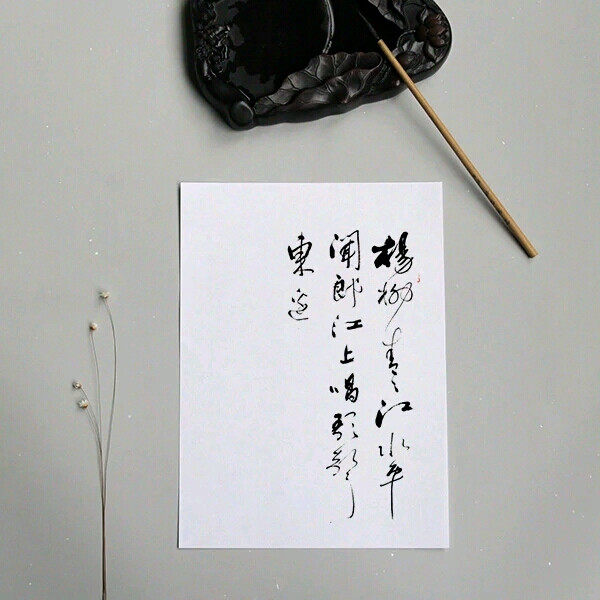 楊柳青〻江水平
聞郎江上唱歌聲
東邊